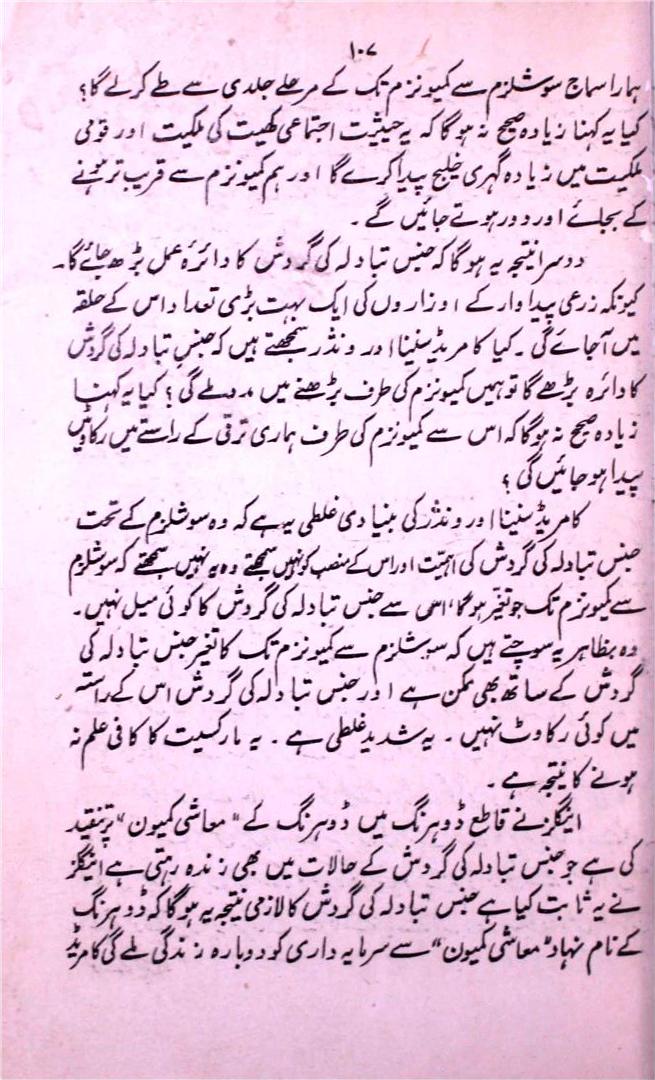 ۱۰۷
ہمارا سماج سوشلزم سے کمیونزم تک کے مرحلے جلدی سے طے کر لے گا؟
کیا یہ کہنا زیادہ صحیح نہ ہو گا کہ یہ حیثیت اجتماعی کھیت کی ملکیت اور قومی
ملکیت میں زیادہ گہری خلیج پیدا کرے گا اور ہم کمیونزم سے قریب تر ہونے
کے بجائے اور دور ہوتے جائیں گے ۔
دوسرا نتیجہ یہ ہو گا کہ جنس تبادلہ کی گردش کا دائرہ عمل بڑھ جائے گا۔
کیونکہ زرعی پیداوار کے اوزاروں کی ایک بہت بڑی تعداد اس کے حلقہ
میں آجائے گی ۔ کیا کامریڈ سنینا اور ونڈر سمجھتے ہیں کہ جنسِ تبادلہ کی گردش
کا دائرہ بڑھے گا تو ہمیں کمیونزم کی طرف بڑھنے میں مدد ملے گی ؟ کیا یہ کہنا
زیادہ صحیح نہ ہو گا کہ اس سے کمیونزم کی طرف ہماری ترقی کے راستے میں رکاوٹیں
پیدا ہو جائیں گی ؟
کامریڈ سنینا اور ونڈر کی بنیادی غلطی یہ ہے کہ وہ سوشلزم کے تحت
جنس تبادلہ کی گردش کی اہمیّت اور اس کے منصب کو نہیں سمجھتے وہ یہ نہیں سمجھتے کہ سوشلزم
سے کمیونزم تک جو تغیّر ہو گا، اسی سے جنس تبادلہ کی گردش کا کوئی میل نہیں۔
وہ بظاہر یہ سوچتے ہیں کہ سوشلزم سے کمیونزم تک کا تغیر جنس تبادلہ کی
گردش کے ساتھ بھی ممکن ہے اور جنس تبادلہ کی گردش اس کے راستہ
میں کوئی رکاوٹ نہیں ۔ یہ شدید غلطی ہے ۔ یہ مارکسیت کا کافی علم نہ
ہونے کا نتیجہ ہے ۔
اینگلز نے قاطع ڈوہرنگ میں ڈوہرنگ کے "معاشی کمیون" پر تنقید
کی ہے جو جنس تبادلہ کی گردش کے حالات میں بھی زندہ رہتی ہے اینگلز
نے یہ ثابت کیا ہے جنس تبادلہ کی گردش کا لازمی نتیجہ یہ ہو گا کہ ڈوہرنگ
کے نام نہاد "معاشی کمیون" سے سرمایہ داری کو دوبارہ زندگی ملے گی کامریڈ